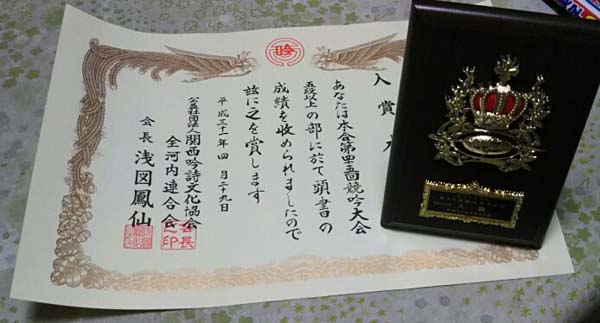 吟
入賞
あなたは本会第四五回競吟大会
五段以上の部に於て頭書の
成績を收められましたので
玆に之を賞します
平成三十一年四月二十九日
公益社団法人関西吟詩文化協会
全河内連合会
会長 浅図鳳仙
会長之印